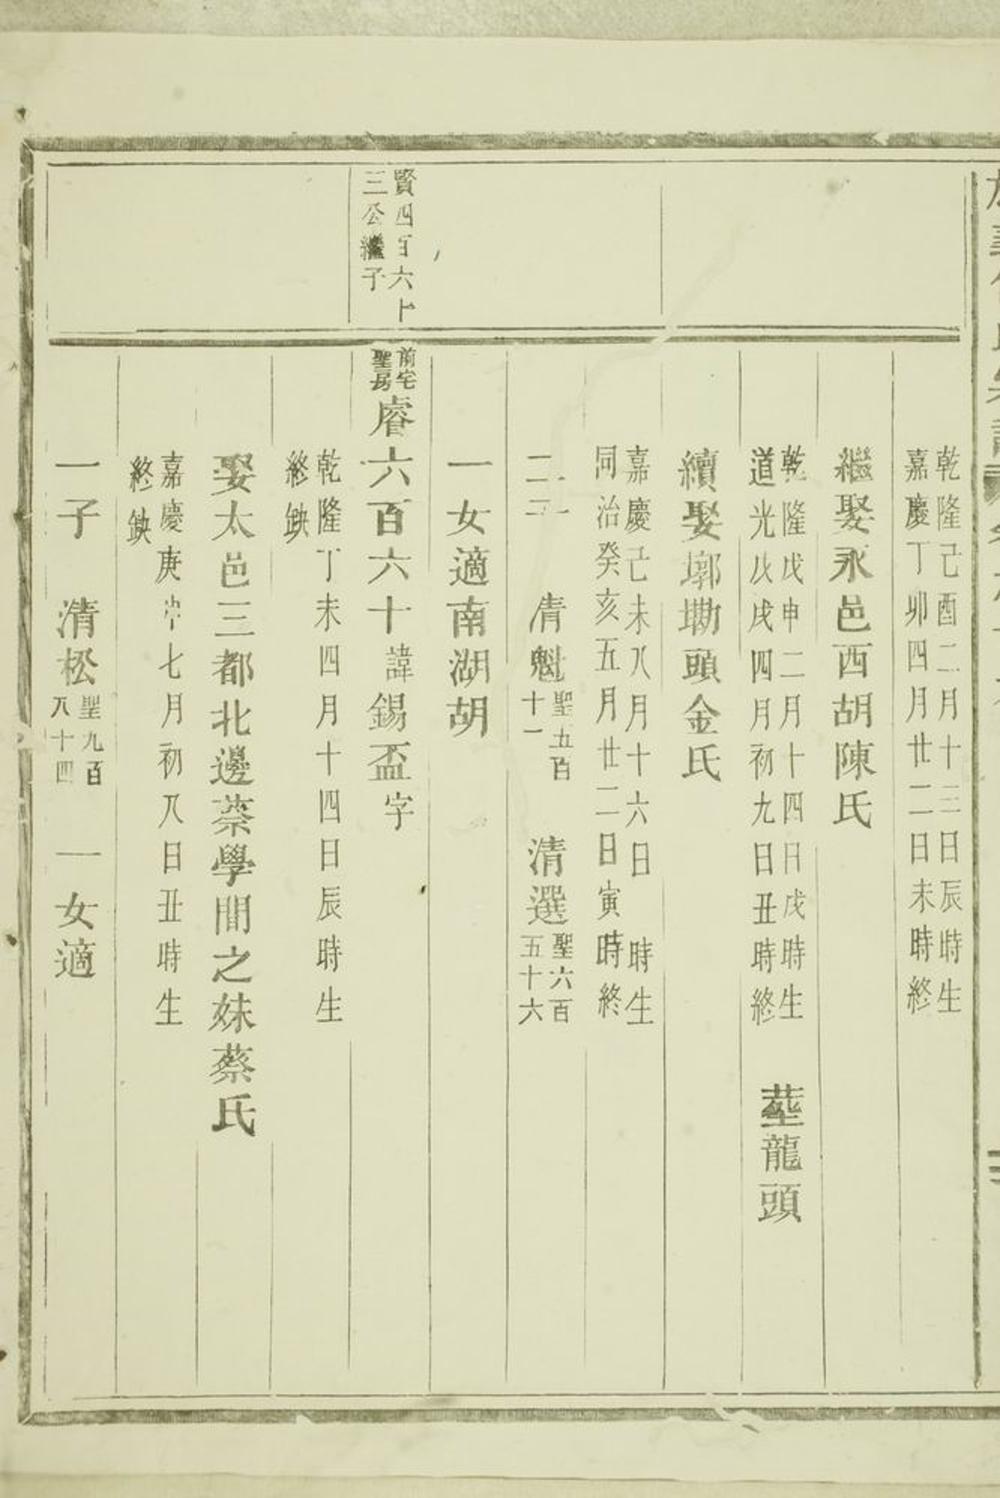 乾隆己酉二月十三日辰時生
嘉慶丁卯四月廿二日未時終
繼娶永邑西胡陳氏
乾隆戊申二月十四日戌時生
道光戊戌四月初九日丑時終
塟龍頭
續娶墎塘頭金氏
嘉慶己未八月十六日 時生
同治癸亥五月廿二日寅時終
二子 清魁 聖五百十一 清選 聖六百五十六
一女適南湖胡
賢四百六十
三公繼子
前宅
聖房
睿六百六十諱錫盃字
乾隆丁未四月十四日辰時生
終缺
娶太邑三都北邊蔡學閒之妹蔡氏
嘉慶庚申七月初八日丑時生
終缺
一子 清松 聖九百八十四 一女適